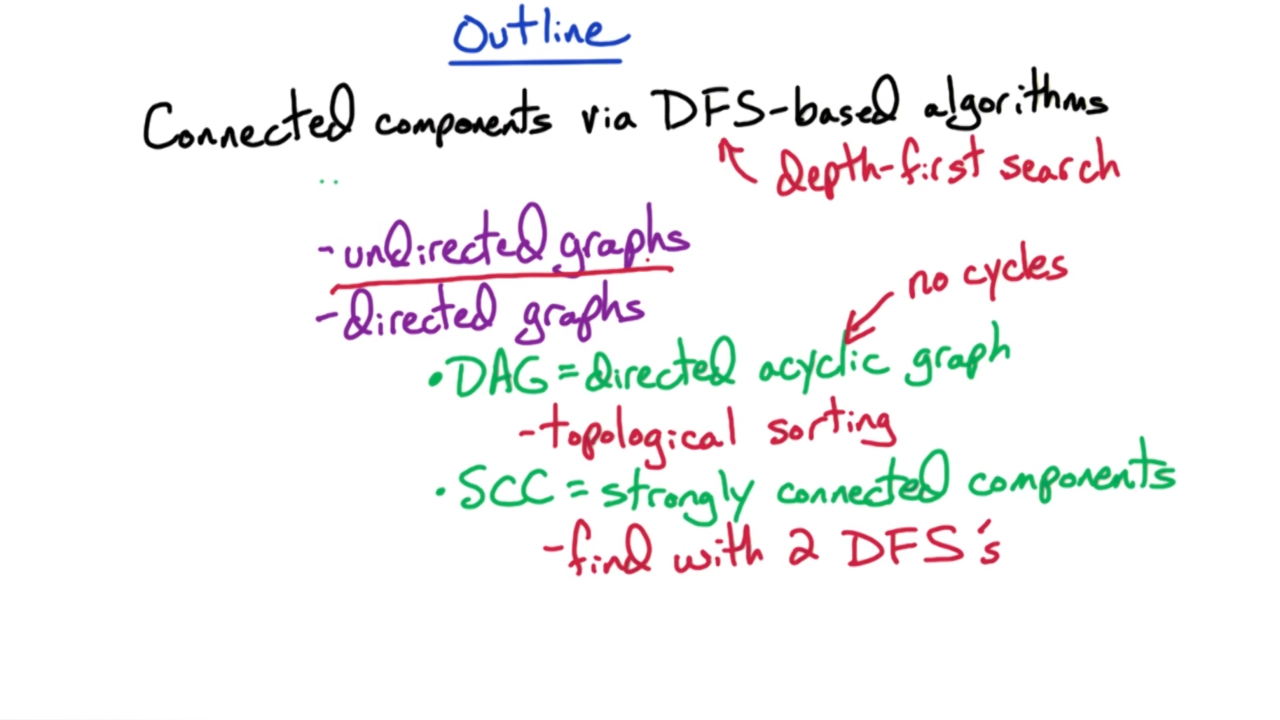 Outline
Connected components via DFS-based algorithms
depth-first search
-undirected graphs
no cycles
-directed graphs
•DAG = directed acyclic graph
-topological sorting
•SCC = strongly connected components
-find with 2 DFS's